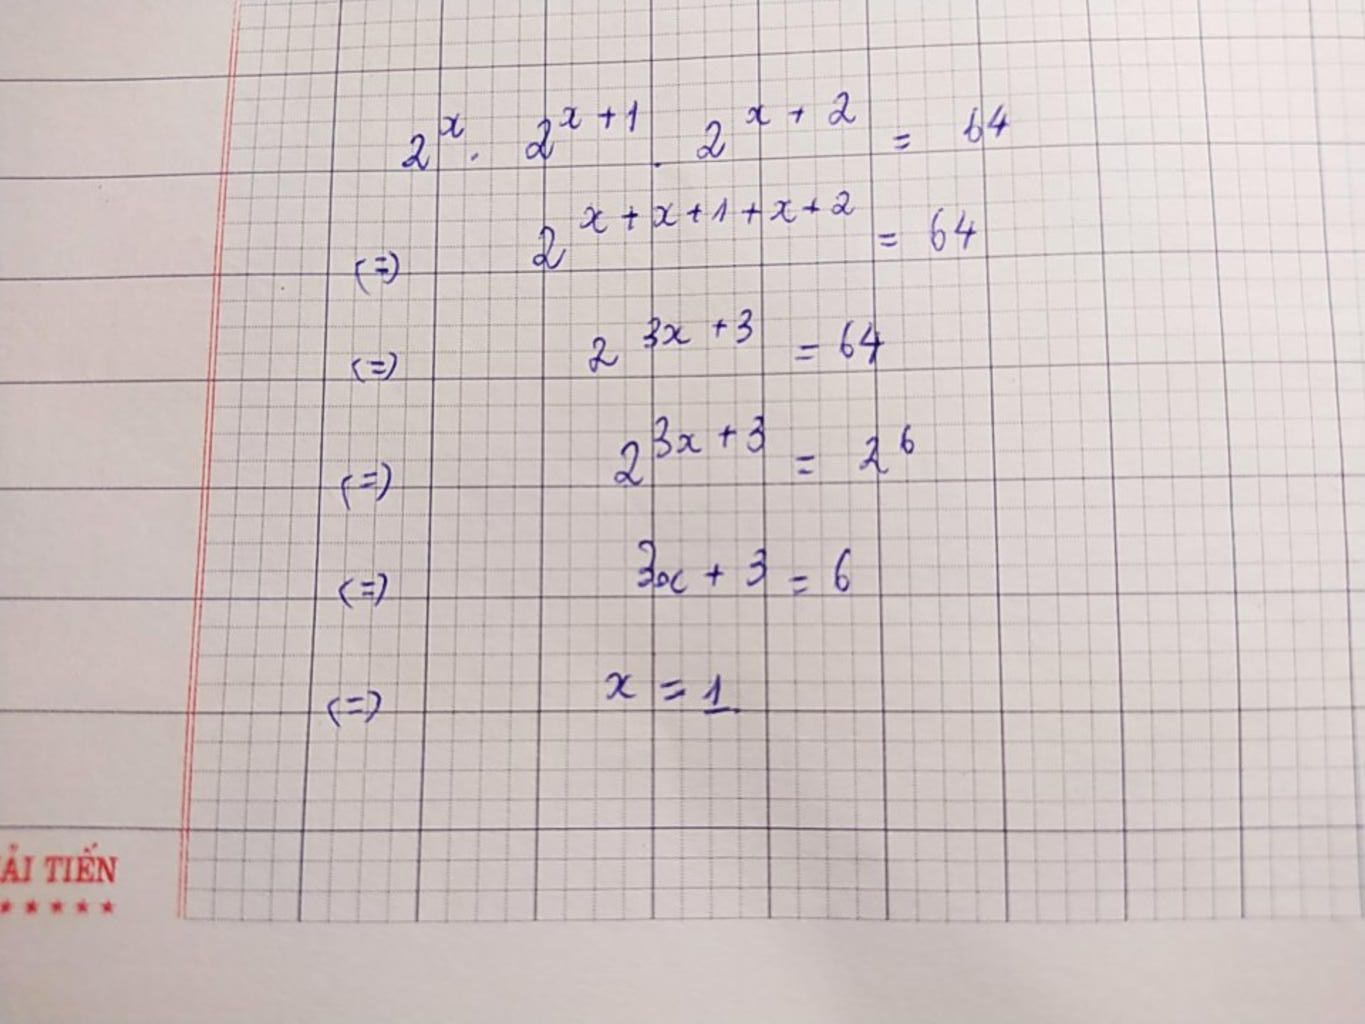 2^x . 2^{x+1} . 2^{x+2} = 64
(=) 2^{x+x+1+x+2} = 64
(=) 2^{3x+3} = 64
(=) 2^{3x+3} = 2^6
(=) 3x + 3 = 6
(=) x = 1
ẢI TIẾN
★★★★★